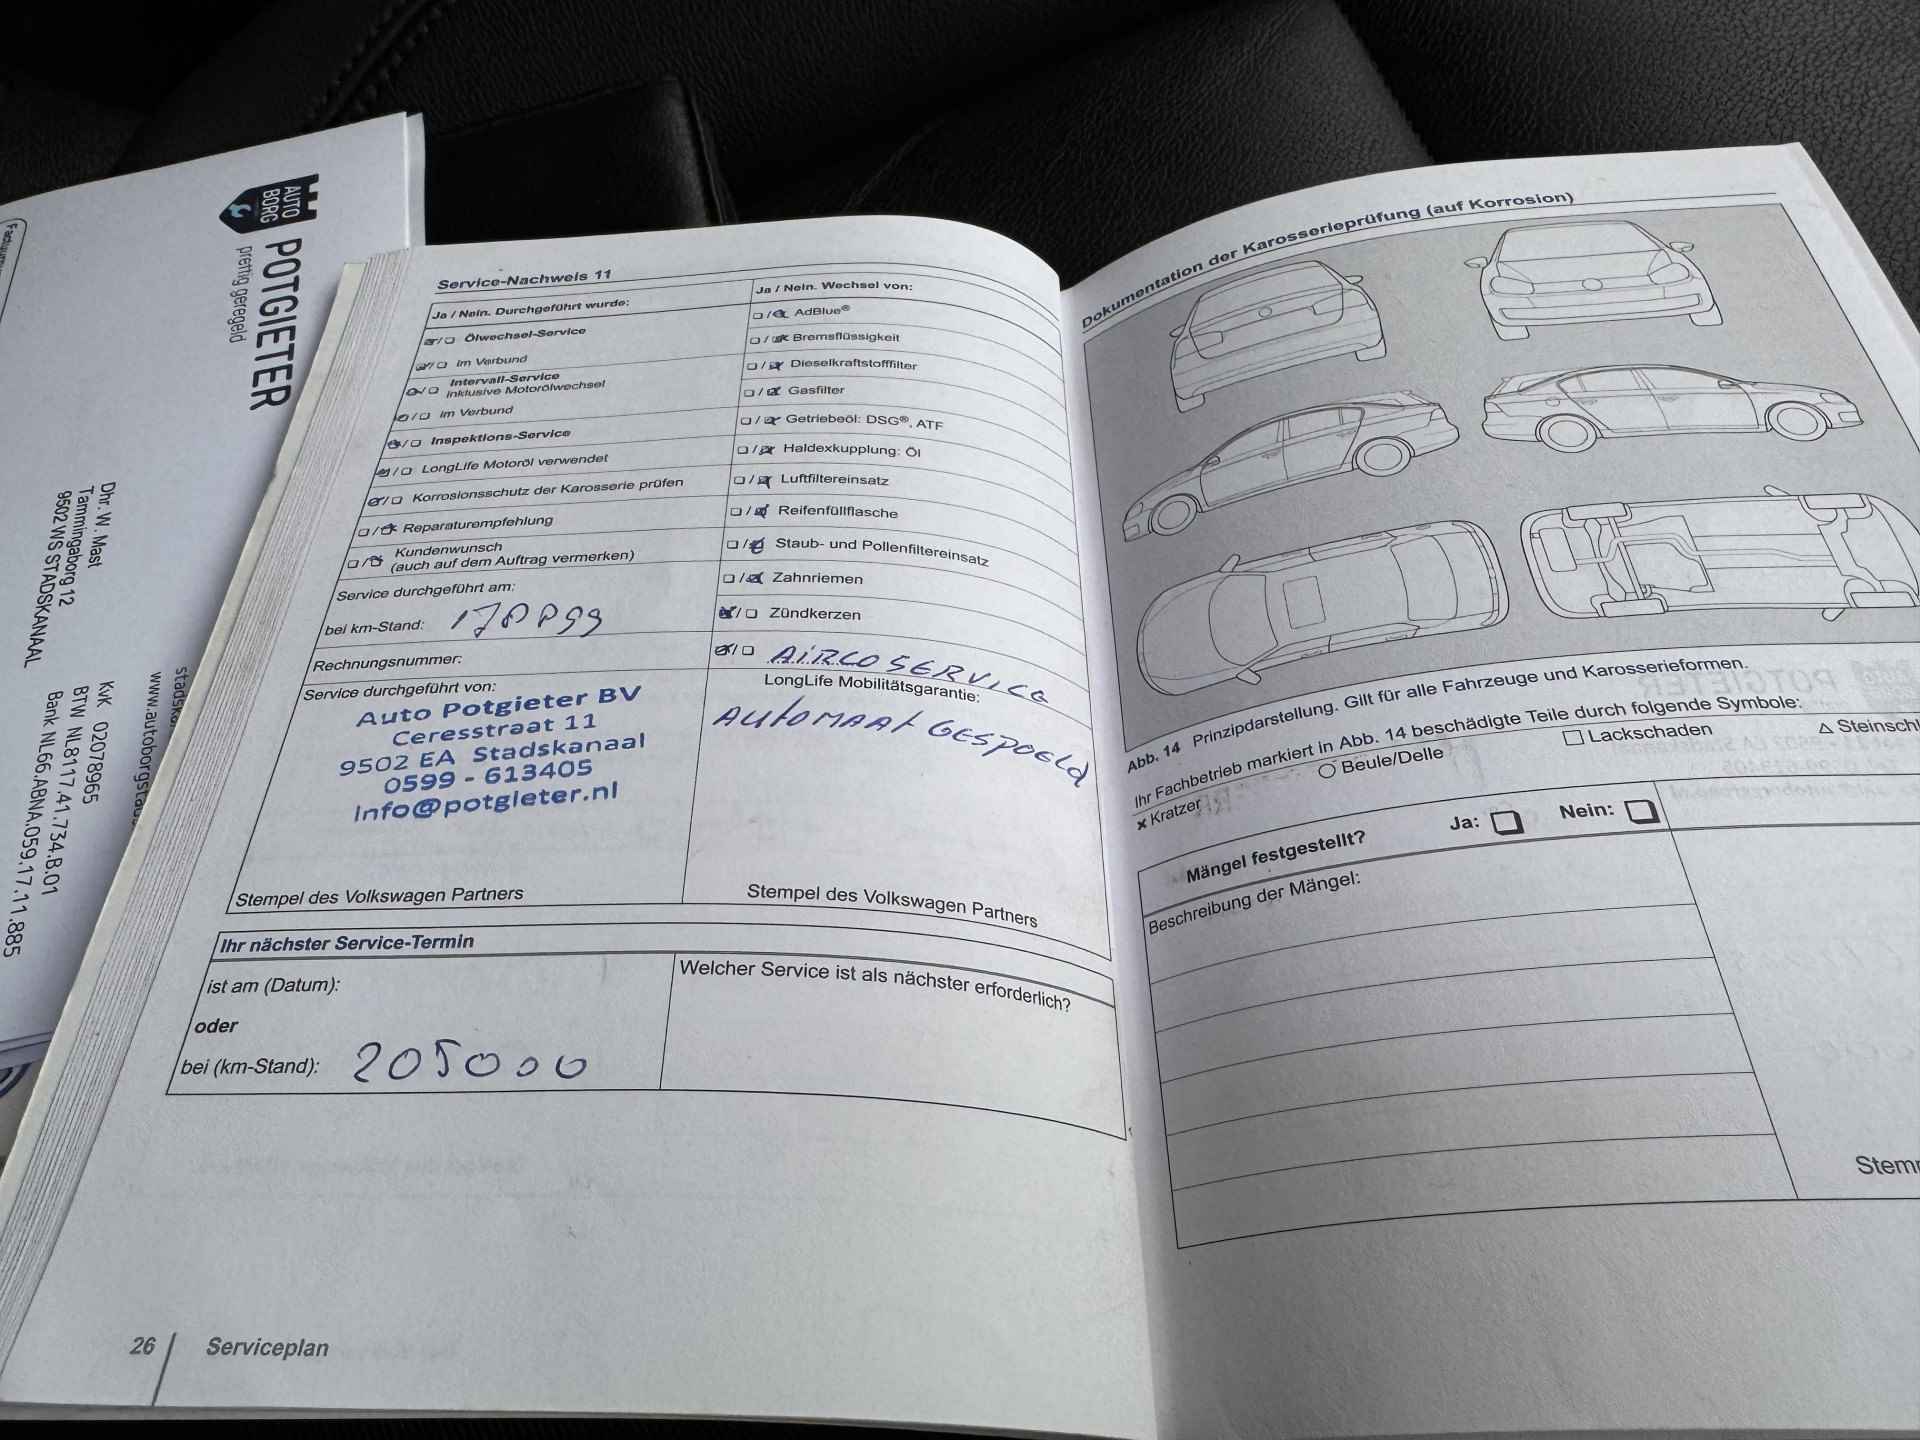 AUTO
BORG
POTGIETER
prettig geregeld
Dhr. W. Mast
Tammingaborg 12
9502 WS STADSKANAAL
www.autoborgstads
KvK 02078965
BTW NL8117.41.734.B.01
Bank NL66.ABNA.059.17.11.885
Service-Nachweis 11
Ja / Nein. Durchgeführt wurde:
Ölwechsel-Service
im Verbund
Intervall-Service
inklusive Motorölwechsel
im Verbund
Inspektions-Service
LongLife Motoröl verwendet
Korrosionsschutz der Karosserie prüfen
Reparaturempfehlung
Kundenwunsch
(auch auf dem Auftrag vermerken)
Service durchgeführt am:
bei km-Stand:
Rechnungsnummer:
Service durchgeführt von:
Auto Potgieter BV
Ceresstraat 11
9502 EA Stadskanaal
0599 - 613405
info@potgieter.nl
Stempel des Volkswagen Partners
Ja / Nein. Wechsel von:
AdBlue®
Bremsflüssigkeit
Dieselkraftstofffilter
Gasfilter
Getriebeöl: DSG®, ATF
Haldexkupplung: Öl
Luftfiltereinsatz
Reifenfüllflasche
Staub- und Pollenfiltereinsatz
Zahnriemen
Zündkerzen
AIRCOSERVICE
LongLife Mobilitätsgarantie:
AUTOMAAT GESPOELD
Stempel des Volkswagen Partners
Ihr nächster Service-Termin
ist am (Datum):
oder
bei (km-Stand): 205000
Welcher Service ist als nächster erforderlich?
26 Serviceplan
Dokumentation der Karosserieprüfung (auf Korrosion)
Abb. 14 Prinzipdarstellung. Gilt für alle Fahrzeuge und Karosserieformen.
Ihr Fachbetrieb markiert in Abb. 14 beschädigte Teile durch folgende Symbole:
× Kratzer ○ Beule/Delle □ Lackschaden △ Steinschl
Mängel festgestellt? Ja: Nein:
Beschreibung der Mängel:
Stem